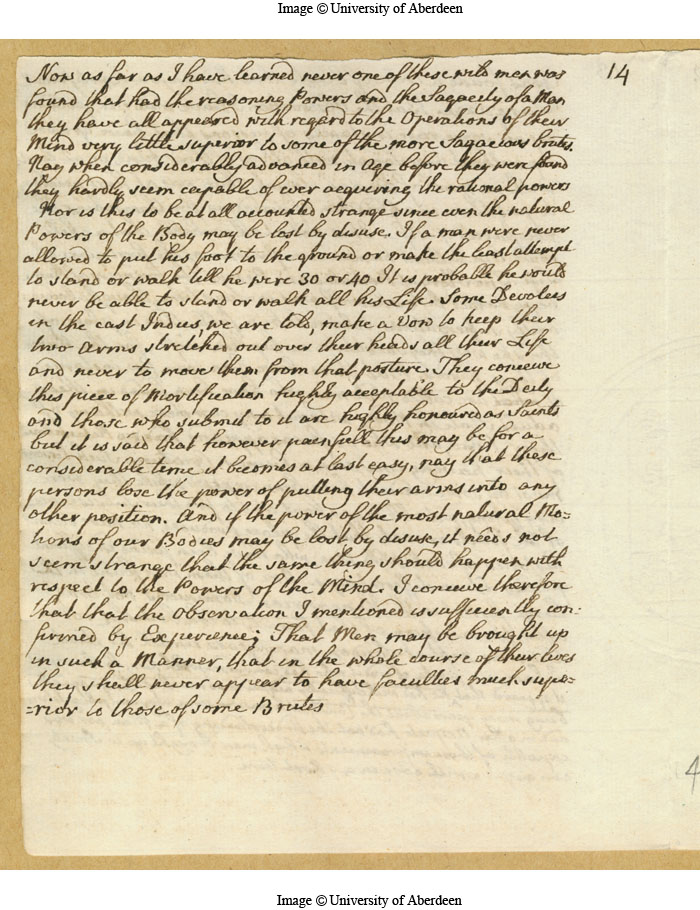 Image © University of Aberdeen
14
Now as far as I have learned never one of these wild men was
found that had the reasoning Powers and the Sagacity of a Man
they have all appeared with regard to the Operations of their
Mind very little superior to some of the more Sagacious brutes.
Nay when considerably advanced in Age before they were found
they hardly seem capable of ever acquiring the rational powers
Nor is this to be at all accounted strange since even the natural
Powers of the Body may be lost by disuse. If a man were never
allowed to put his foot to the ground or make the least attempt
to stand or walk till he were 30 or 40 It is probable he would
never be able to stand or walk all his Life. Some Devotees
in the east Indies, we are told, make a Vow to keep their
two Arms stretched out over their heads all their Life
and never to move them from that posture. They conceive
this piece of Mortification highly acceptable to the Deity
and those who submit to it are highly honoured as Saints
but it is said that however painfull this may be for a
considerable time it becomes at last easy, nay that these
persons lose the power of putting their arms into any
other position. And if the power of the most natural Mo=
tions of our Bodies may be lost by disuse, it needs not
seem strange that the same thing should happen with
respect to the Powers of the Mind. I conceive therefore
that that the Observation I mentioned is sufficiently con-
firmed by Experience; That Men may be brought up
in such a Manner, that in the whole course of their lives
they shall never appear to have faculties much supe=
=rior to those of some Brutes
4
Image © University of Aberdeen